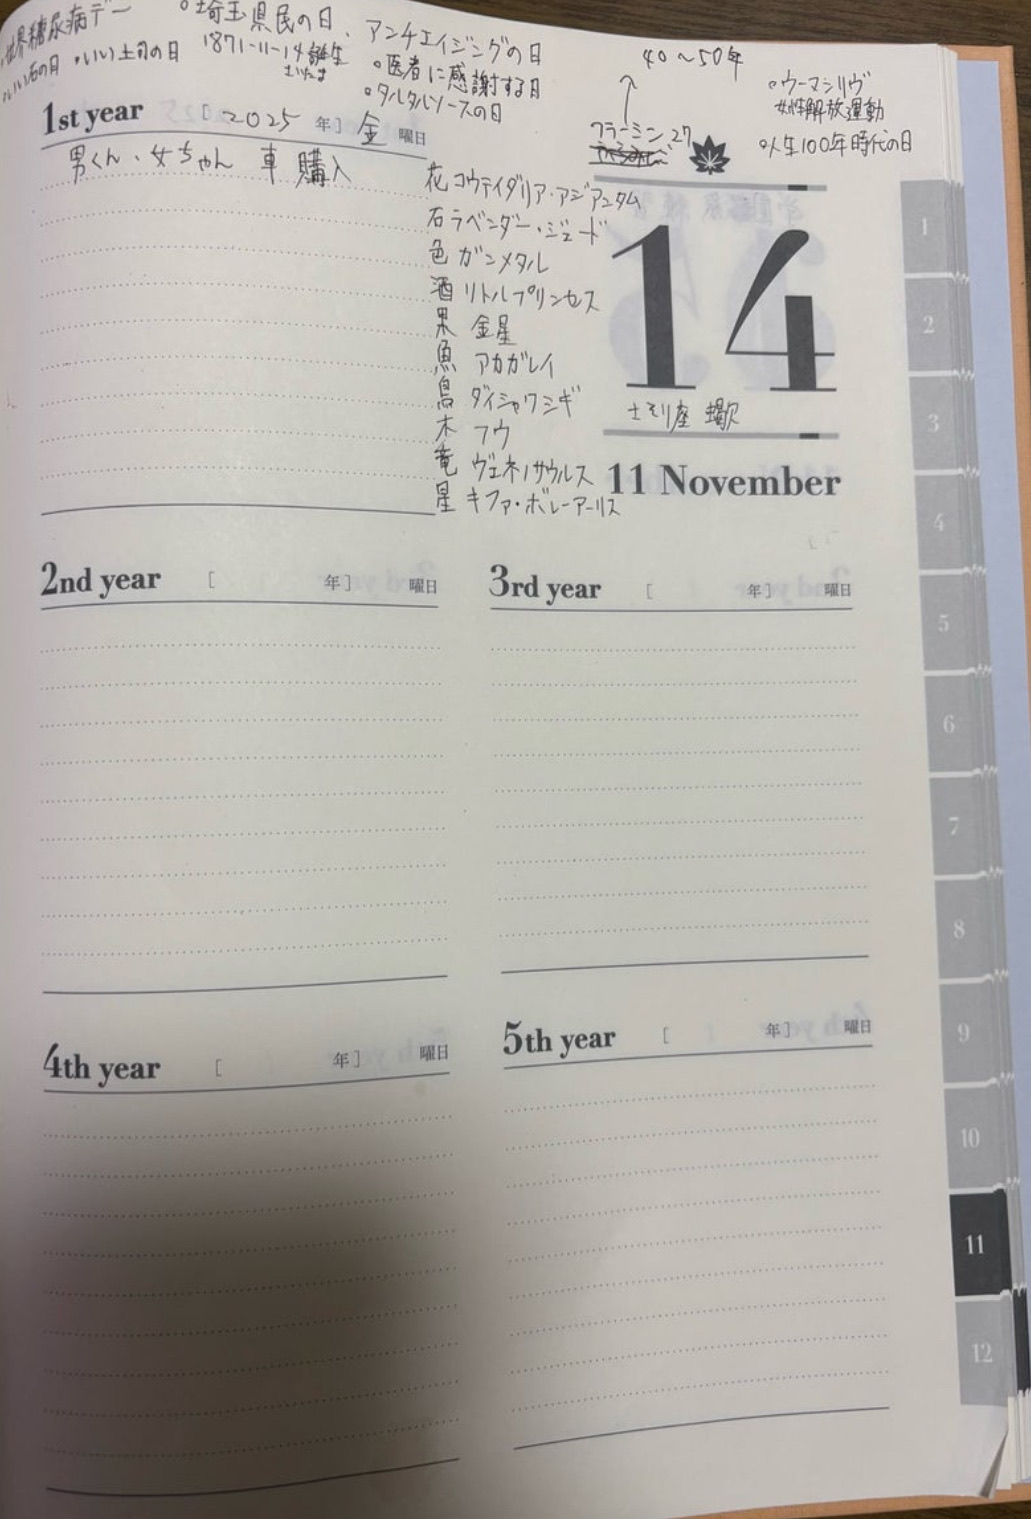 世界糖尿病デー
・いい石の日 ・いい土司の日
○埼玉県民の日、
1871-11-14誕生
さいたま
アンチエイジングの日
○医者に感謝する日
○タルタルソースの日
40〜50年
フラーミン27
○ウーマンリヴ
女性解放運動
○人生100年時代の日
1st year [2025 年] 金 曜日
男くん・女ちゃん 車 購入
花 コウテイダリア・アジアンタム
石 ラベンダー・ジェード
色 ガンメタル
酒 リトルプリンセス
果 金星
魚 アカガレイ
鳥 ダイシャクシギ
木 フウ
竜 ヴェネノサウルス
星 キファ・ボレーアーリス
14
さそり座 蠍
11 November
2nd year [ 年] 曜日
3rd year [ 年] 曜日
4th year [ 年] 曜日
5th year [ 年] 曜日
1
2
3
4
5
6
7
8
9
10
11
12